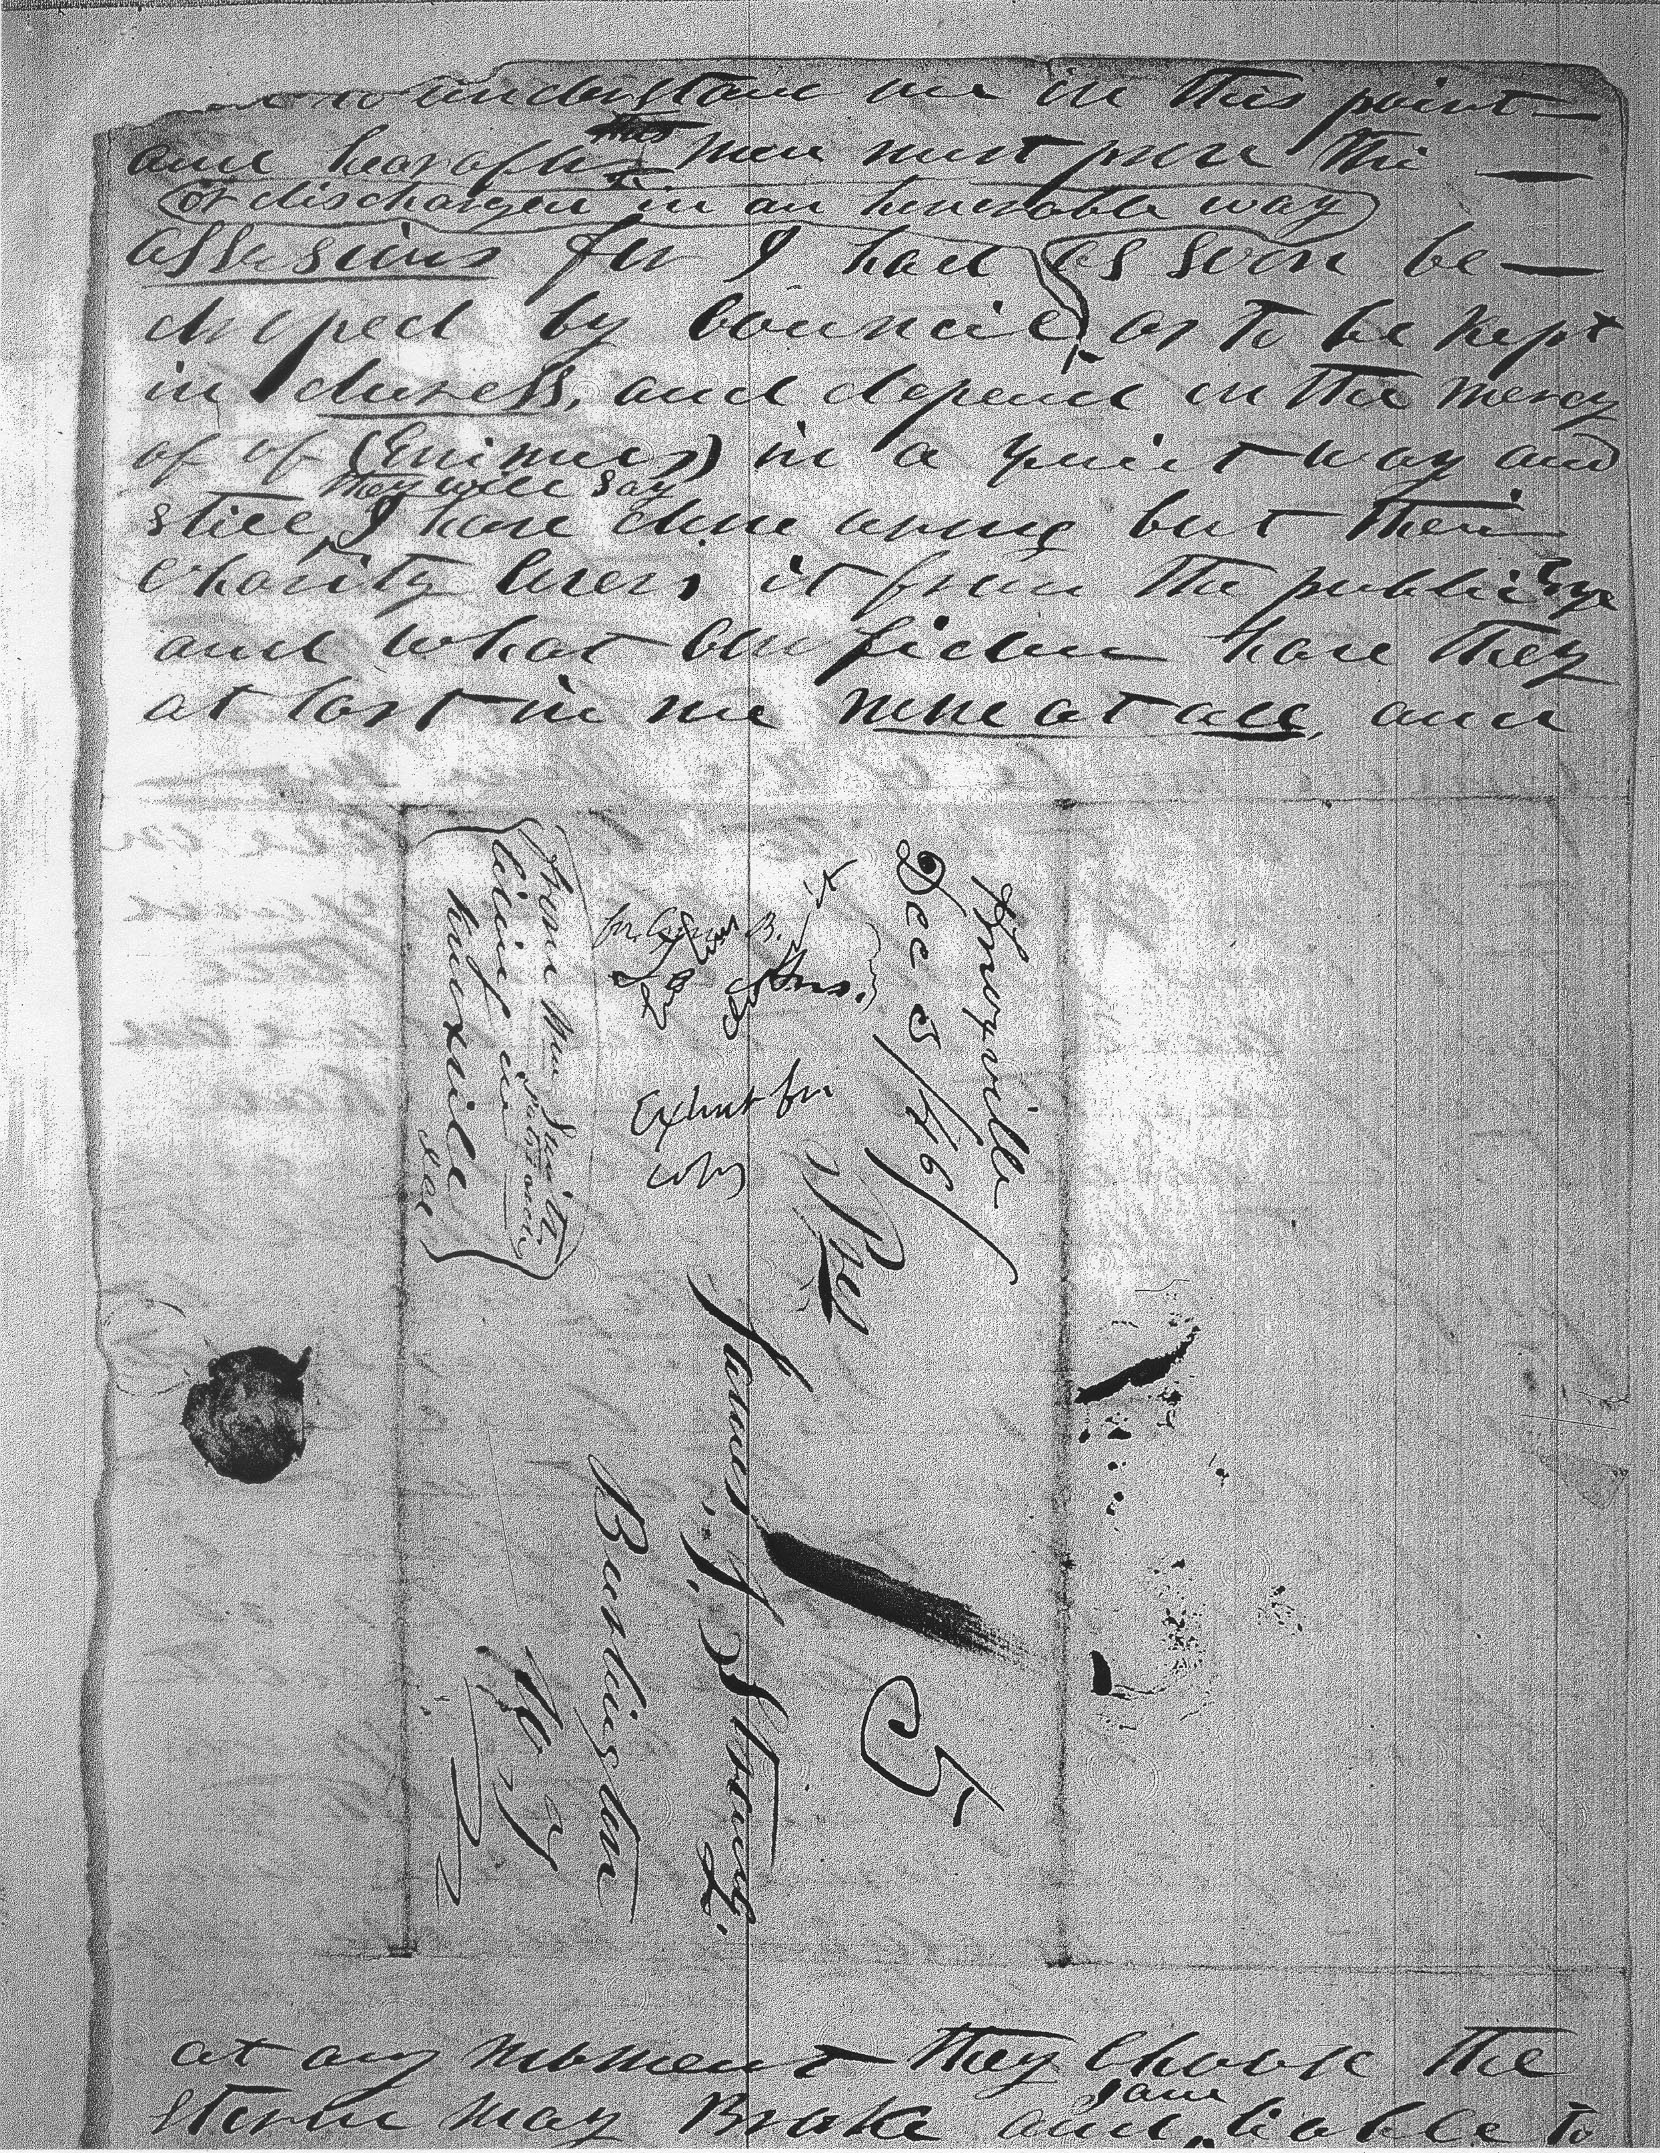 to understand me in this point —
and hearafter men must prove the —
or discharged in an honorable way
assersions for I had as soon be —
droped by council as to be kept
in duress, and depend on the mercy
of of (Enimies) in a quiet way and
they will say
still I have done wrong but their
charity covers it from the publick eye
and what confidence have they
at last in me none at all and
Knoxville
Dec 5/46
5
James J. Strang.
Burlington
from Wm Smith
chief
Knoxville
Exhort for
at any moment they choose the
I am
storm may Brake and liable to